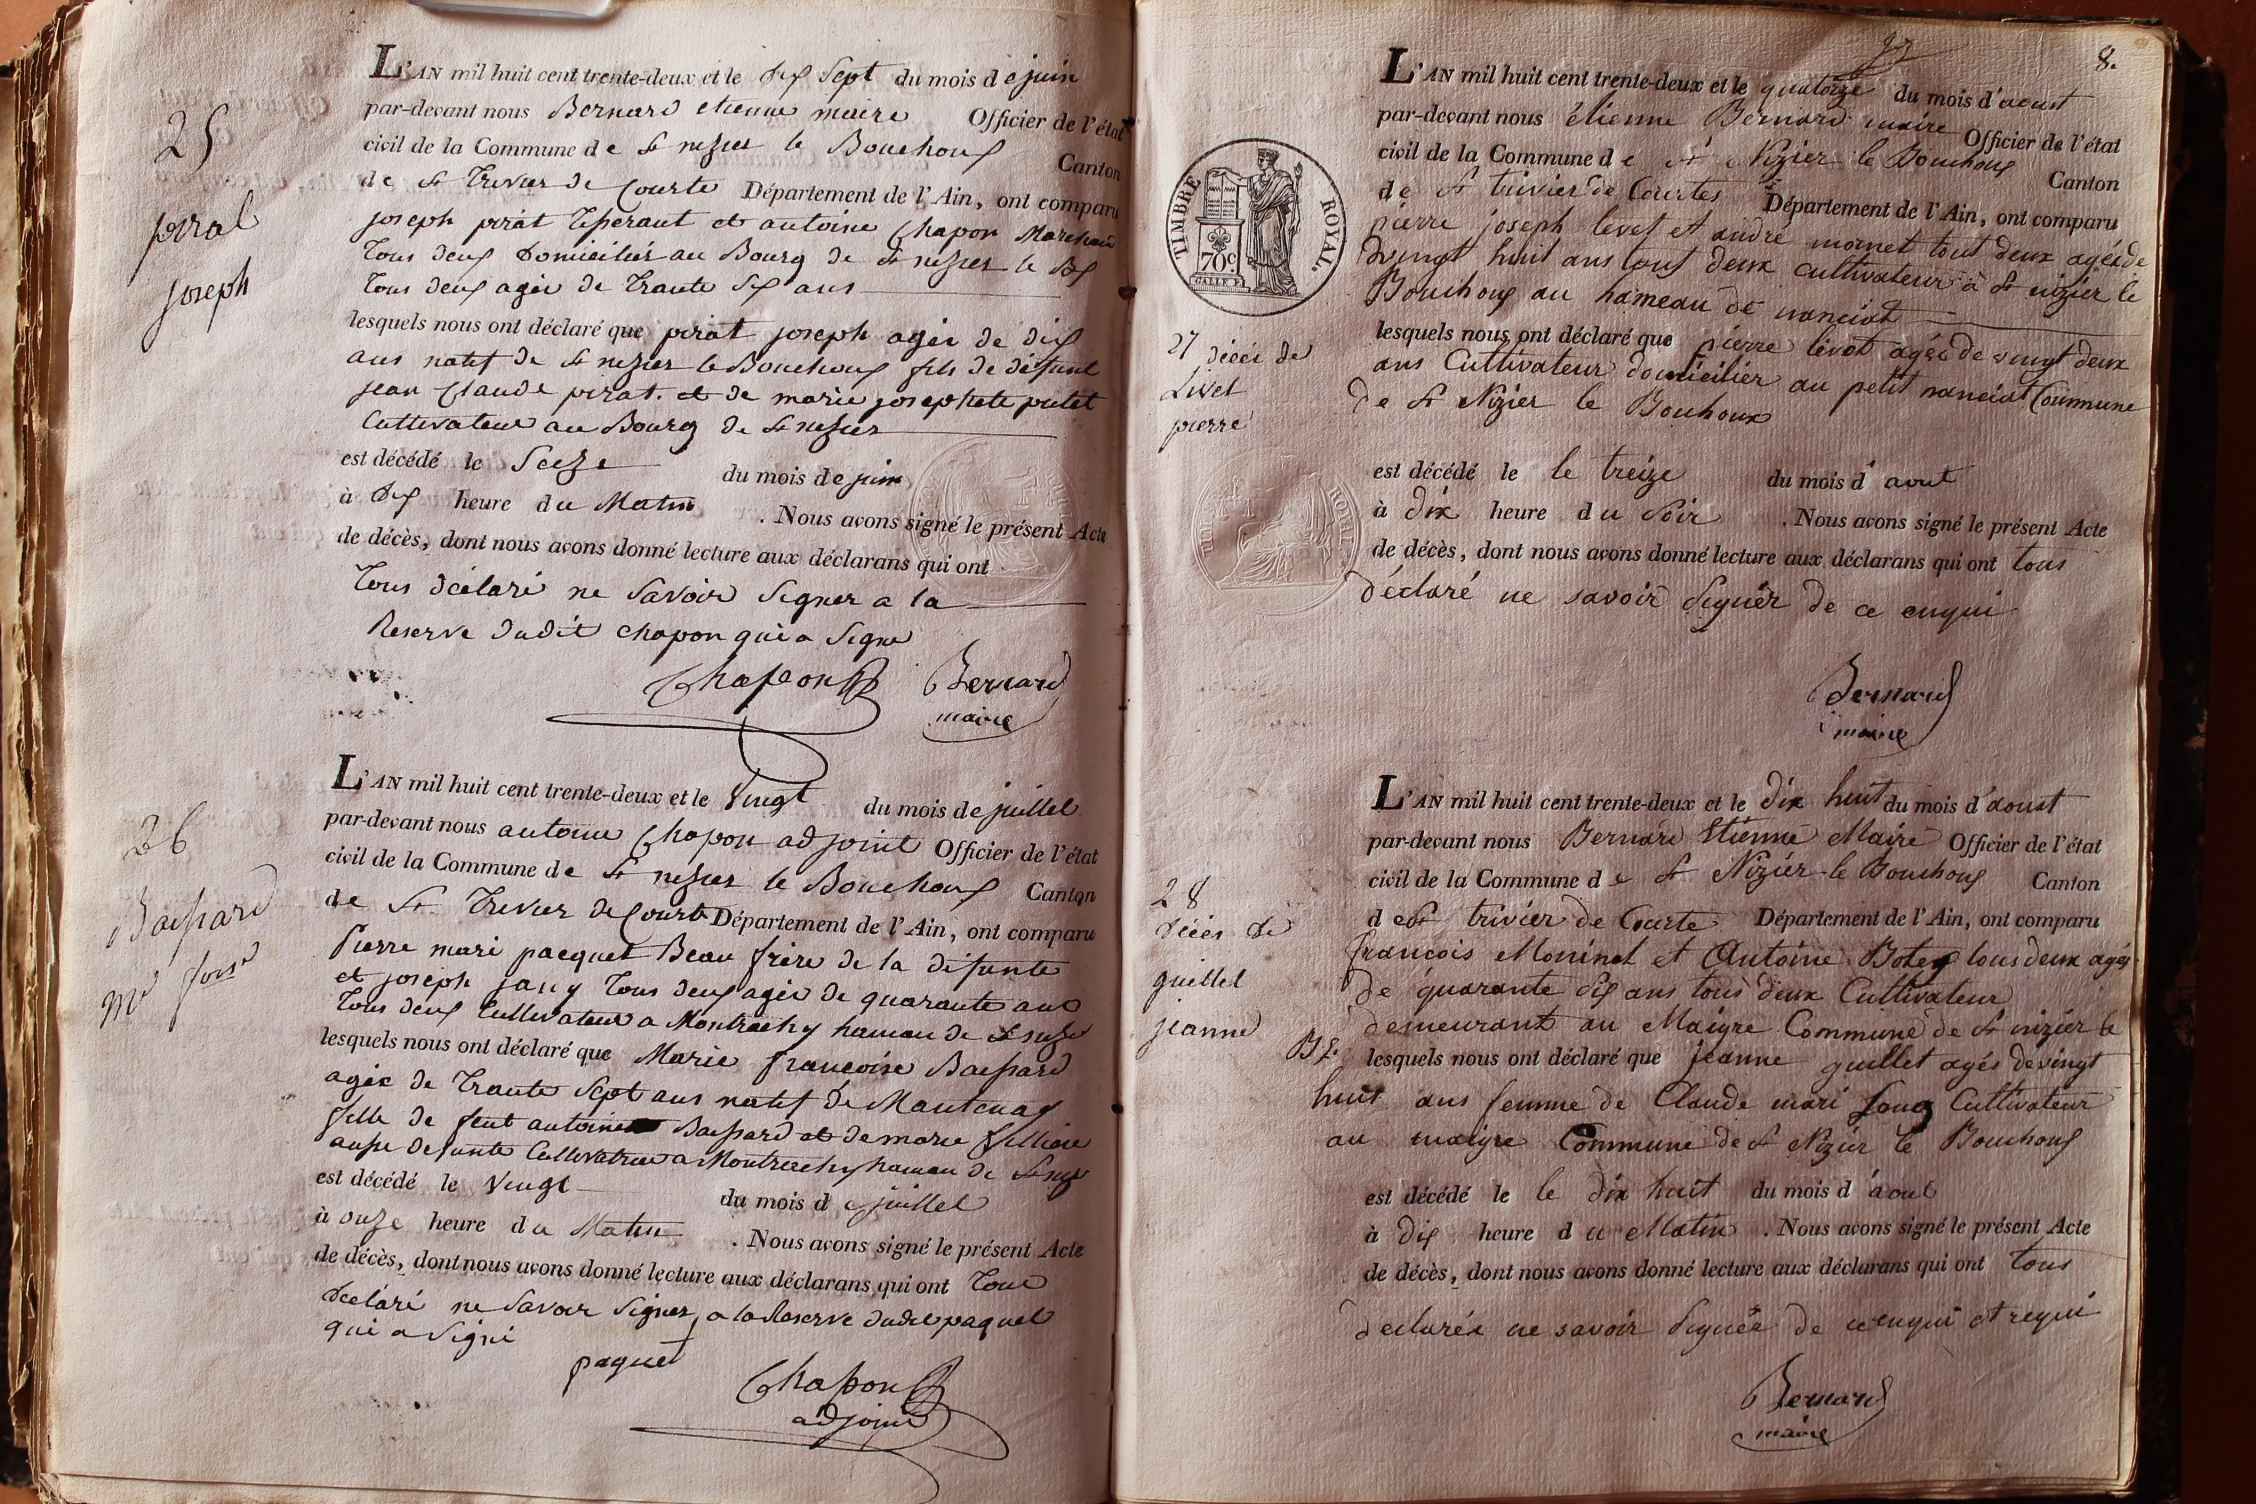 25
pirat
joseph
L'AN mil huit cent trente-deux et le dix Sept du mois de juin
par-devant nous Bernard etienne maire Officier de l'état
civil de la Commune de St nesier le Bouchoux Canton
de St Trevier de Courte Département de l'Ain, ont comparu
joseph pirat Tisseraut et antoine Chapon Marchand
Tous deux Domiciliés au Bourg de St nesier le Bx
Tous deux agée de Trante Six ans
lesquels nous ont déclaré que pirat joseph agée de dix
ans natif de St nesier le Bouchoux fils de défunt
jean Claude pirat. et de marie josephete putet
Cultivateur au Bourg de St nesier
est décédé le Seize du mois de juin
à dix heure du Matin . Nous avons signé le présent Acte
de décès, dont nous avons donné lecture aux déclarans qui ont
Tous déclaré ne Savoir Signer a la
Reserve dudit chapon qui a Signe
Chapon Bernard
maire
26
Baissard
me foise
L'AN mil huit cent trente-deux et le Vingt du mois de juillet
par-devant nous antoine Chapon adjoint Officier de l'état
civil de la Commune de St nesier le Bouchoux Canton
de St Trevier de Courte Département de l'Ain, ont comparu
Pierre mari pacquet Beau frère de la défunte
et joseph jany Tous deux agée de quarante ans
Tous deux Cultivateur a Montrachy hameau de St nesie
lesquels nous ont déclaré que Marie francoise Baissard
agée de Trante Sept ans natif de Mantenay
fille de feut antoine Baissard et de marie filliou
aussi defunte Cultivatrice a Montrachy hameau de St nesie
est décédé le Vingt du mois de juillet
à onze heure du Matin . Nous avons signé le présent Acte
de décès, dont nous avons donné lecture aux déclarans qui ont Tous
déclaré ne Savoir Signer, a la Reserve dudit paquet
qui a Signé
paquet
Chapon
adjoint
8.
TIMBRE ROYAL.
70c
27 décés de
Livet
pierre
L'AN mil huit cent trente-deux et le quatorze du mois d'aoust
par-devant nous étienne Bernard maire Officier de l'état
civil de la Commune de St Nizier le Bouchoux Canton
de St trivier de Courtes Département de l'Ain, ont comparu
pierre joseph levet et andré mornet tout deux agés de
vingt huit ans tout deux cultivateur à St nizier le
Bouchoux au hameau de nanciat
lesquels nous ont déclaré que pierre livet agés de vingt deux
ans Cultivateur domicilier au petit nanciat Commune
de St Nizier le Bouhoux
est décédé le le treize du mois d'aout
à dix heure du Soir . Nous avons signé le présent Acte
de décès, dont nous avons donné lecture aux déclarans qui ont tous
déclaré ne savoir Signér de ce enqui
Bernard
maire
28
décés de
guillet
jeanne
L'AN mil huit cent trente-deux et le dix huit du mois d'aoust
par-devant nous Bernard Etienne Maire Officier de l'état
civil de la Commune de St Nizier le Bouchoux Canton
de St trivier de Courte Département de l'Ain, ont comparu
françois Moninet et Antoine Botex tous deux agés
de quarante dix ans tous deux Cultivateur
demeurant au Maigre Commune de St nizier le
Bx. lesquels nous ont déclaré que jeanne guillet agés de vingt
huit ans femme de Claude mari Long Cultivateur
au maigre Commune de St Nizier le Bouchoux
est décédé le le dix huit du mois d'aout
à dix heure du Matin . Nous avons signé le présent Acte
de décès, dont nous avons donné lecture aux déclarans qui ont tous
declarés ne savoir Signér de ce enqui et requi
Bernard
maire